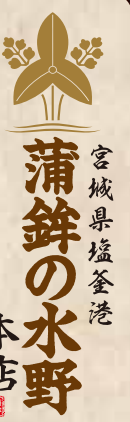 宮城県塩釜港
蒲鉾の水野
本店